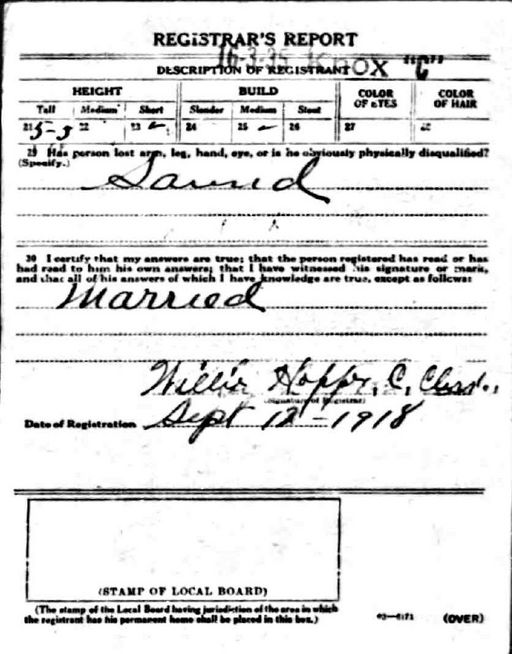 REGISTRAR'S REPORT
16-3-35 Knox "C"
DESCRIPTION OF REGISTRANT
HEIGHT BUILD COLOR OF EYES COLOR OF HAIR
Tall Medium Short Slender Medium Stout
21 5-3 22 23 24 25 26 27 28
29 Has person lost arm, leg, hand, eye, or is he obviously physically disqualified?
(Specify.)
Sound
30 I certify that my answers are true; that the person registered has read or has
had read to him his own answers; that I have witnessed his signature or mark,
and that all of his answers of which I have knowledge are true, except as follows:
Married
Willie Hopper, C,
(Signature of Registrar)
Date of Registration Sept 12-1918
(STAMP OF LOCAL BOARD)
(The stamp of the Local Board having jurisdiction of the area in which
the registrant has his permanent home shall be placed in this box.)
03-6171 (OVER)